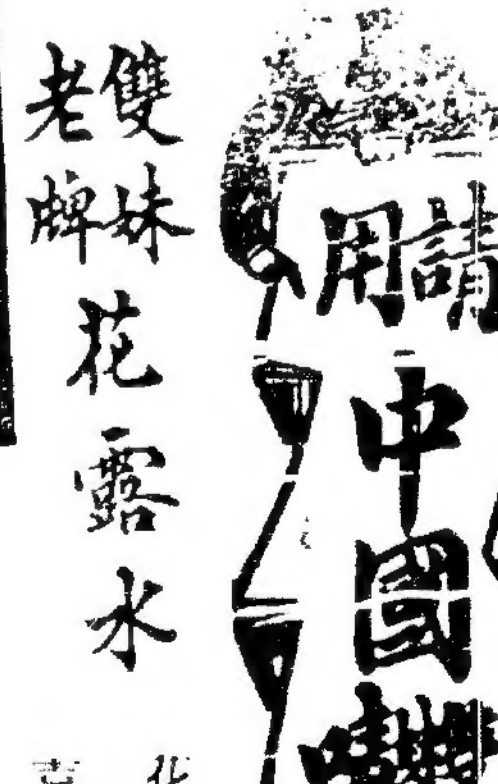 請用
中
國
雙妹
老牌
花
露
水